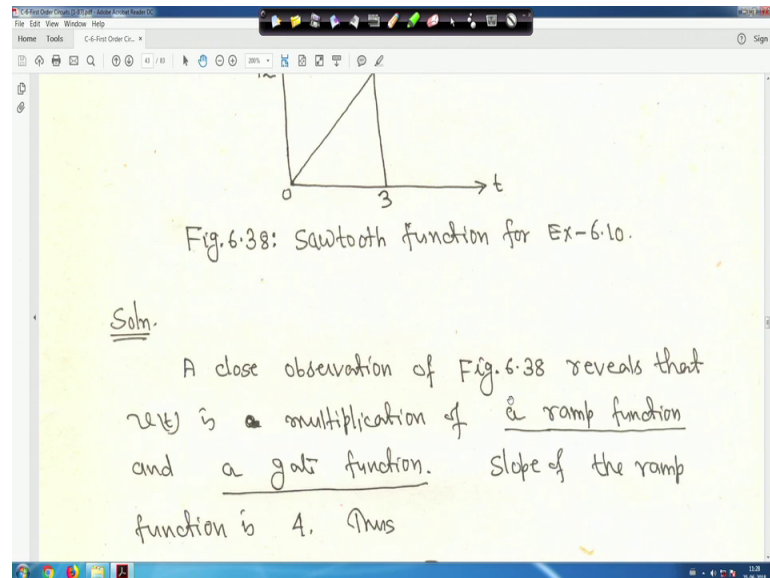 C-6-First Order Circuits (1-83).pdf - Adobe Acrobat Reader DC
File Edit View Window Help
Home Tools C-6-First Order Cir... × Sign
43 / 83 200%
0 3 t
Fig. 6.38: Sawtooth function for Ex-6.10.
Soln.
A close observation of Fig. 6.38 reveals that
v(t) is a multiplication of a ramp function
and a gate function. Slope of the ramp
function is 4. Thus
11:28